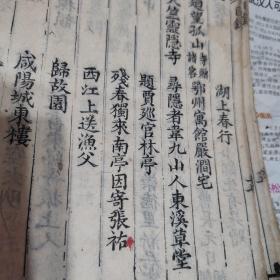 湖上春行
迴望孤山寺贈諸客 鄂州寓館嚴澗宅
靈隱寺 尋隱者韋九山人東溪草堂
題賈巡官林亭
殘春獨來南亭因寄張祜
西江上送漁父
歸故園
咸陽城東樓